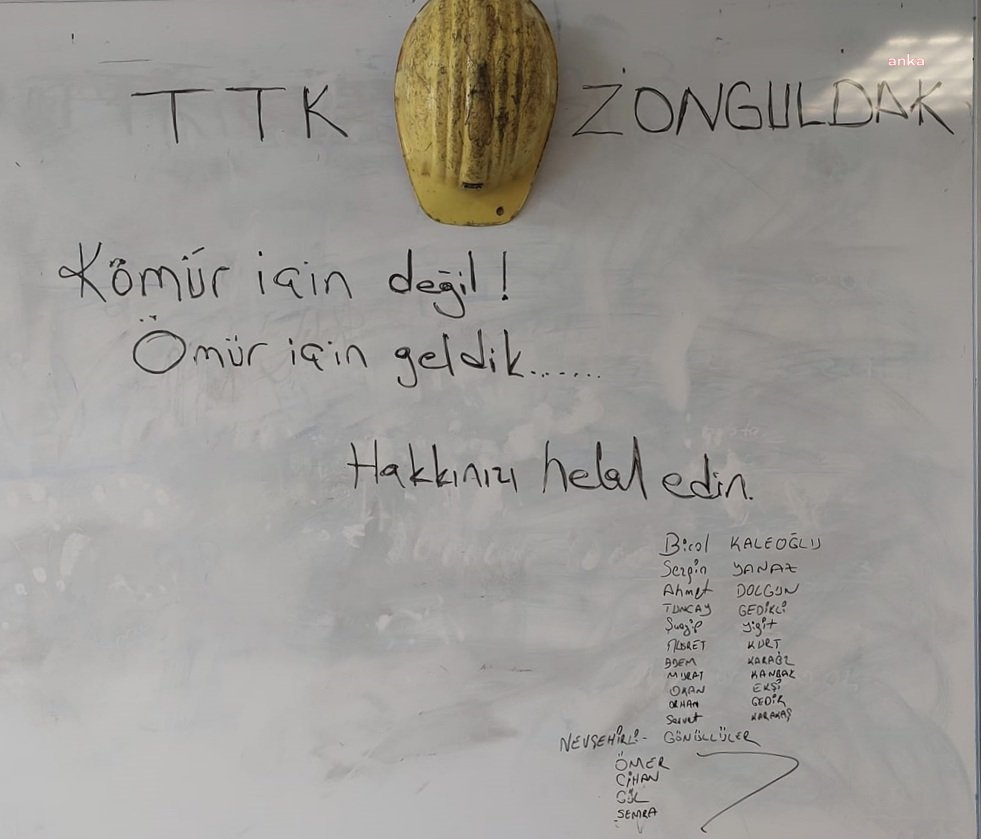 anka
TTK ZONGULDAK
Kömür için değil!
Ömür için geldik......
Hakkınızı helal edin.
Birol KALEOĞLU
Sezgin YANAZ
Ahmet DOLGUN
TUNCAY GEDİKLİ
Şuayip Yiğit
NUSRET KURT
ADEM
MURAT
OKAN EKŞİ
ORHAN GEDİK
Servet KARAKAŞ
NEVŞEHİRLİ- GÖNÜLLÜLER
ÖMER
CİHAN
GÜL
SEMRA